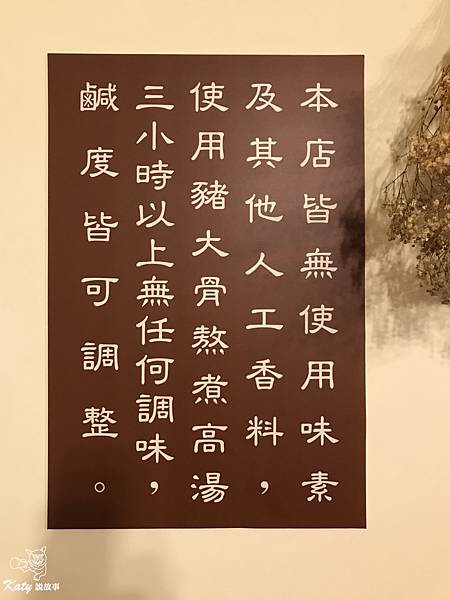 本店皆無使用味素
及其他人工香料，
使用豬大骨熬煮高湯
三小時以上無任何調味，
鹹度皆可調整。
Katy 說故事